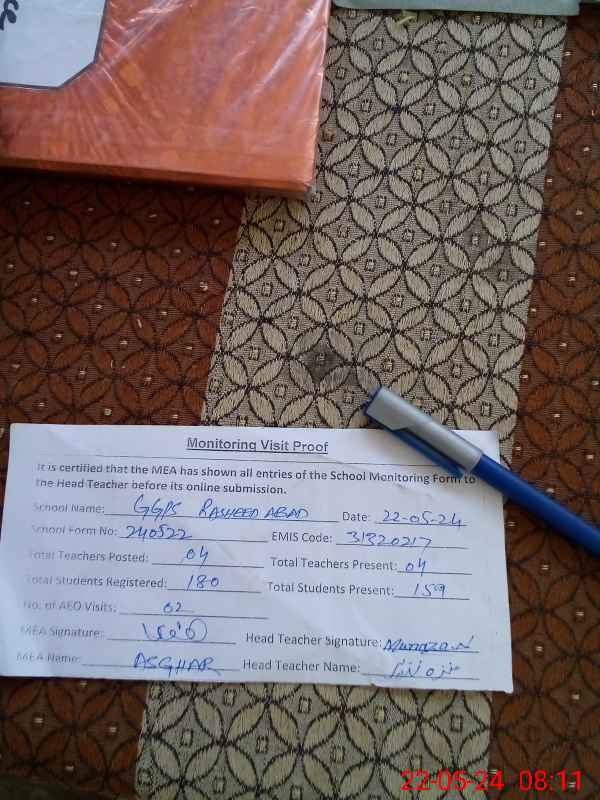 Monitoring Visit Proof
It is certified that the MEA has shown all entries of the School Monitoring Form to
the Head Teacher before its online submission.
School Name: GGPS RASHEED ABAD Date: 22-05-24
School Form No: 240522 EMIS Code: 31320217
Total Teachers Posted: 04 Total Teachers Present: 04
Total Students Registered: 180 Total Students Present: 159
No. of AEO Visits: 02
MEA Signature: Head Teacher Signature:
MEA Name: ASGHAR Head Teacher Name:
22-05-24 08:11